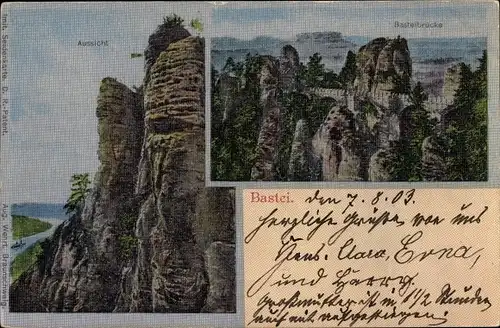 Aussicht
Basteibrücke
Imit. Seidenkarte D. R.-Patent.
Aug. Wehrt, Braunschweig.
Bastei. den 7. 8. 03.
Herzliche Grüße von uns
Clara, Erna,
und Harry.
Großmutter ist in 1 1/2 Stunden
auch mit aufgestiegen.